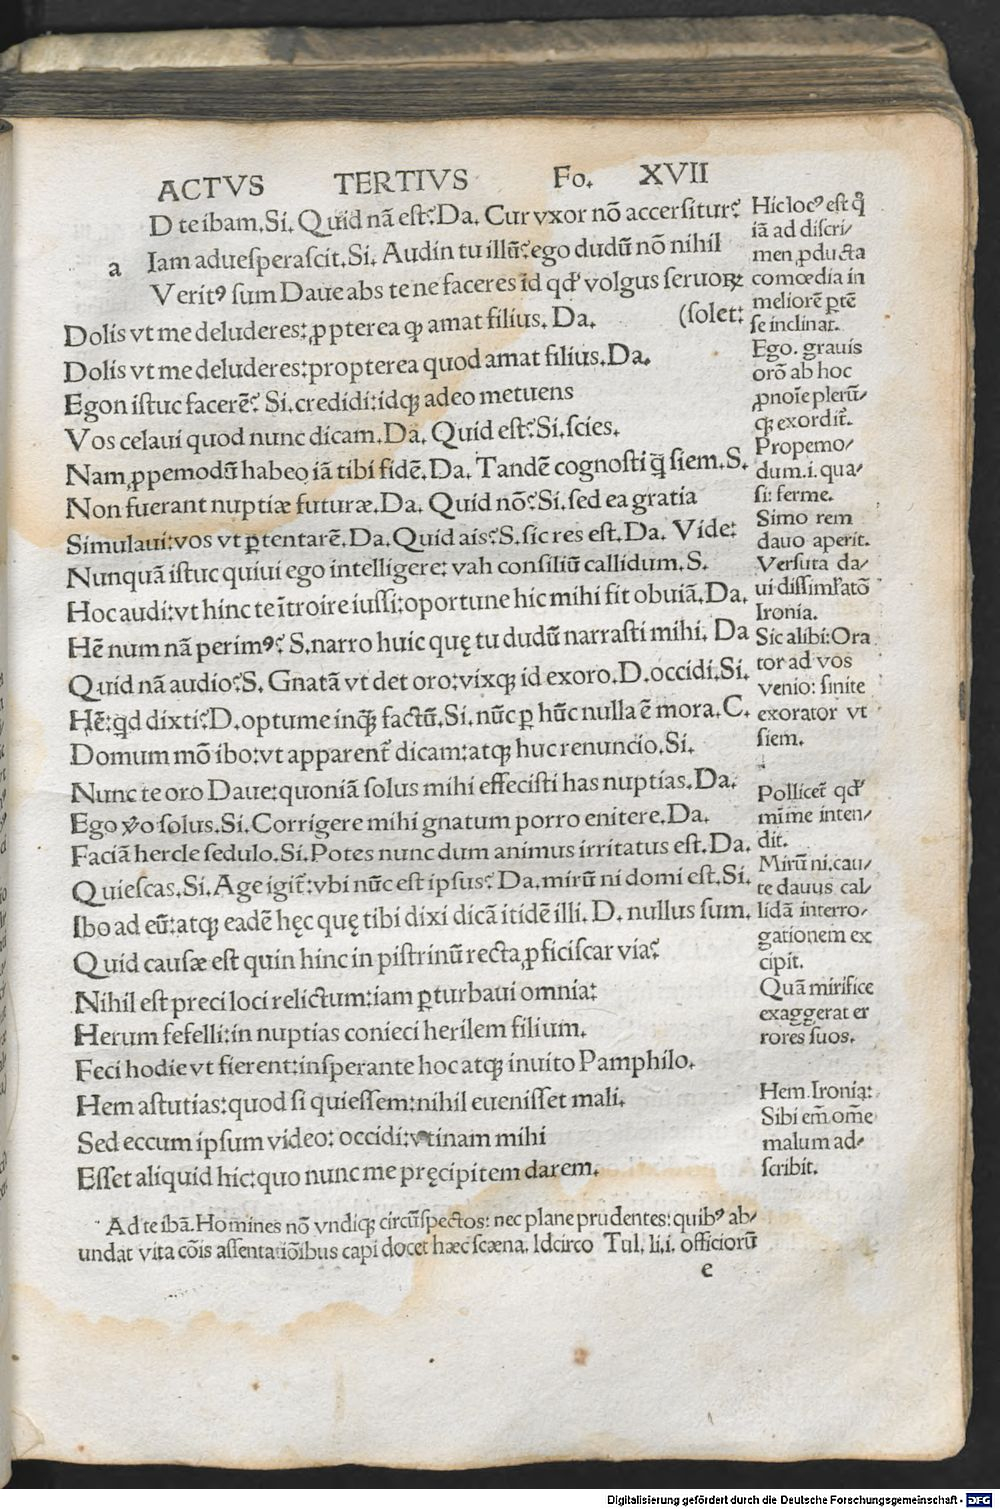 ACTVS TERTIVS Fo. XVII
a
D te ibam. Si. Quid nã est? Da. Cur vxor nõ accersitur?
Iam aduesperascit. Si. Audin tu illũ? ego dudũ nõ nihil
Veritꝰ sum Daue abs te ne faceres id qđ volgus seruoꝝ
(solet:
Dolis vt me deluderes: ꝓpterea ꝙ amat filius. Da.
Dolis vt me deluderes: propterea quod amat filius. Da.
Egon istuc facerẽ? Si. credidi: idqꝫ adeo metuens
Vos celaui quod nunc dicam. Da. Quid est? Si. scies.
Nam ꝓpemodũ habeo iã tibi fidẽ. Da. Tandẽ cognosti q̃ siem. S.
Non fuerant nuptiæ futuræ. Da. Quid nõ? Si. sed ea gratia
Simulaui: vos vt ꝑtentarẽ. Da. Quid ais? S. sic res est. Da. Vide:
Nunquã istuc quiui ego intelligere: vah consiliũ callidum. S.
Hoc audi: vt hinc te ĩtroire iussi: oportune hic mihi fit obuiã. Da.
Hẽ num nã perimꝰ? S. narro huic quę tu dudũ narrasti mihi. Da
Quid nã audio? S. Gnatã vt det oro: vixqꝫ id exoro. D. occidi. Si.
Hẽ: qd dixti? D. optume inqꝫ factũ. Si. nũc ꝑ hũc nulla ẽ mora. C.
Domum mõ ibo: vt apparent᷑ dicam: atqꝫ huc renuncio. Si.
Nunc te oro Daue: quoniã solus mihi effecisti has nuptias. Da.
Ego v̉o solus. Si. Corrigere mihi gnatum porro enitere. Da.
Faciã hercle sedulo. Si. Potes nunc dum animus irritatus est. Da.
Quiescas. Si. Age igit᷑: vbi nũc est ipsus? Da. mirũ ni domi est. Si.
Ibo ad eũ: atqꝫ eadẽ hęc quę tibi dixi dicã itidẽ illi. D. nullus sum.
Quid causæ est quin hinc in pistrinũ recta ꝓficiscar via?
Nihil est preci loci relictum: iam ꝑturbaui omnia:
Herum fefelli: in nuptias conieci herilem filium.
Feci hodie vt fierent: insperante hoc atqꝫ inuito Pamphilo.
Hem astutias: quod si quiessem: nihil euenisset mali.
Sed eccum ipsum video: occidi: vtinam mihi
Esset aliquid hic: quo nunc me pręcipitem darem.
Hic locꝰ est q̃
iã ad discri/
men ꝓducta
comœdia in
meliorẽ ꝑtẽ
se inclinat.
Ego. grauis
orõ ab hoc
ꝓnoĩe plerũ/
qꝫ exordit᷑.
Propemo/
dum. i. qua/
si: ferme.
Simo rem
dauo aperit.
Versuta da/
ui dissimĩlatõ
Ironia.
Sic alibi: Ora
tor ad vos
venio: sinite
exorator vt
siem.
Pollicet᷑ qđ
mĩme inten/
dit.
Mirũ ni. cau/
te dauus cal/
lidã interro/
gationem ex
cipit.
Quã mirifice
exaggerat er
rores suos.
Hem. Ironia:
Sibi em̃ om̃e
malum ad/
scribit.
Ad te ibã. Homines nõ vndiqꝫ circũspectos: nec plane prudentes: quibꝰ ab/
undat vita cõis assentatiõibus capi docet hæc scæna. Idcirco Tul. li. i. officiorũ
e
Digitalisierung gefördert durch die Deutsche Forschungsgemeinschaft - DFG